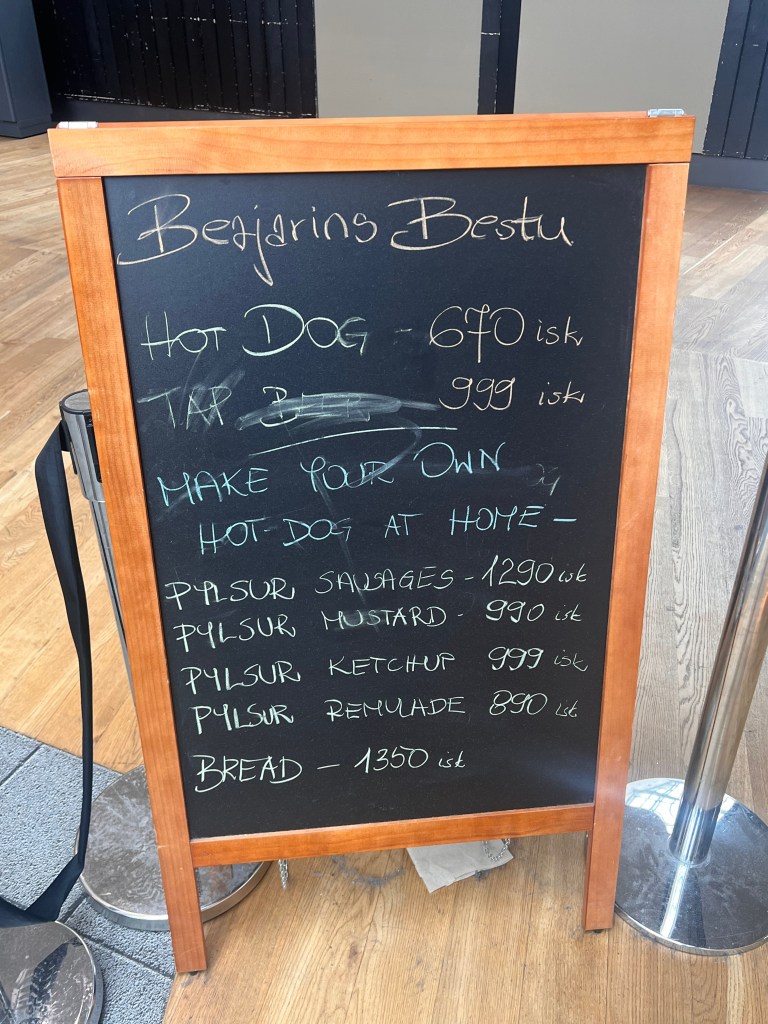 Beajarins Bestu
HOT DOG - 670 isk
TAP BEER 999 isk
MAKE YOUR OWN
HOT-DOG AT HOME -
PYLSUR SAUSAGES - 1290 isk
PYLSUR MUSTARD - 990 isk
PYLSUR KETCHUP 999 isk
PYLSUR REMULADE 890 isk
BREAD - 1350 isk